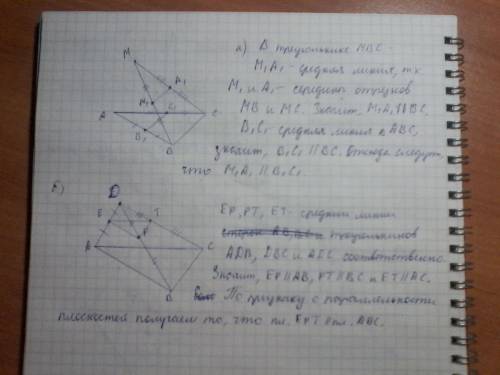 а) В треугольнике MBC -
M₁A₁ - средняя линия, т.к
M₁ и A₁ - середины отрезков
MB и MC. Значит, M₁A₁ || BC,
B₁C₁ - средняя линия ABC,
значит, B₁C₁ || BC. Отсюда следует,
что M₁A₁ || B₁C₁
M
A₁
M₁
A
C₁
C
B₁
B
б)
D
E
T
P
A
C
B
EP, PT, ET - средние линии
треугольников
ADB, DBC и ADC соответственно.
Значит, EP || AB, PT || BC и ET || AC.
По признаку о параллельности
плоскостей получаем то, что пл. EPT || пл. ABC.